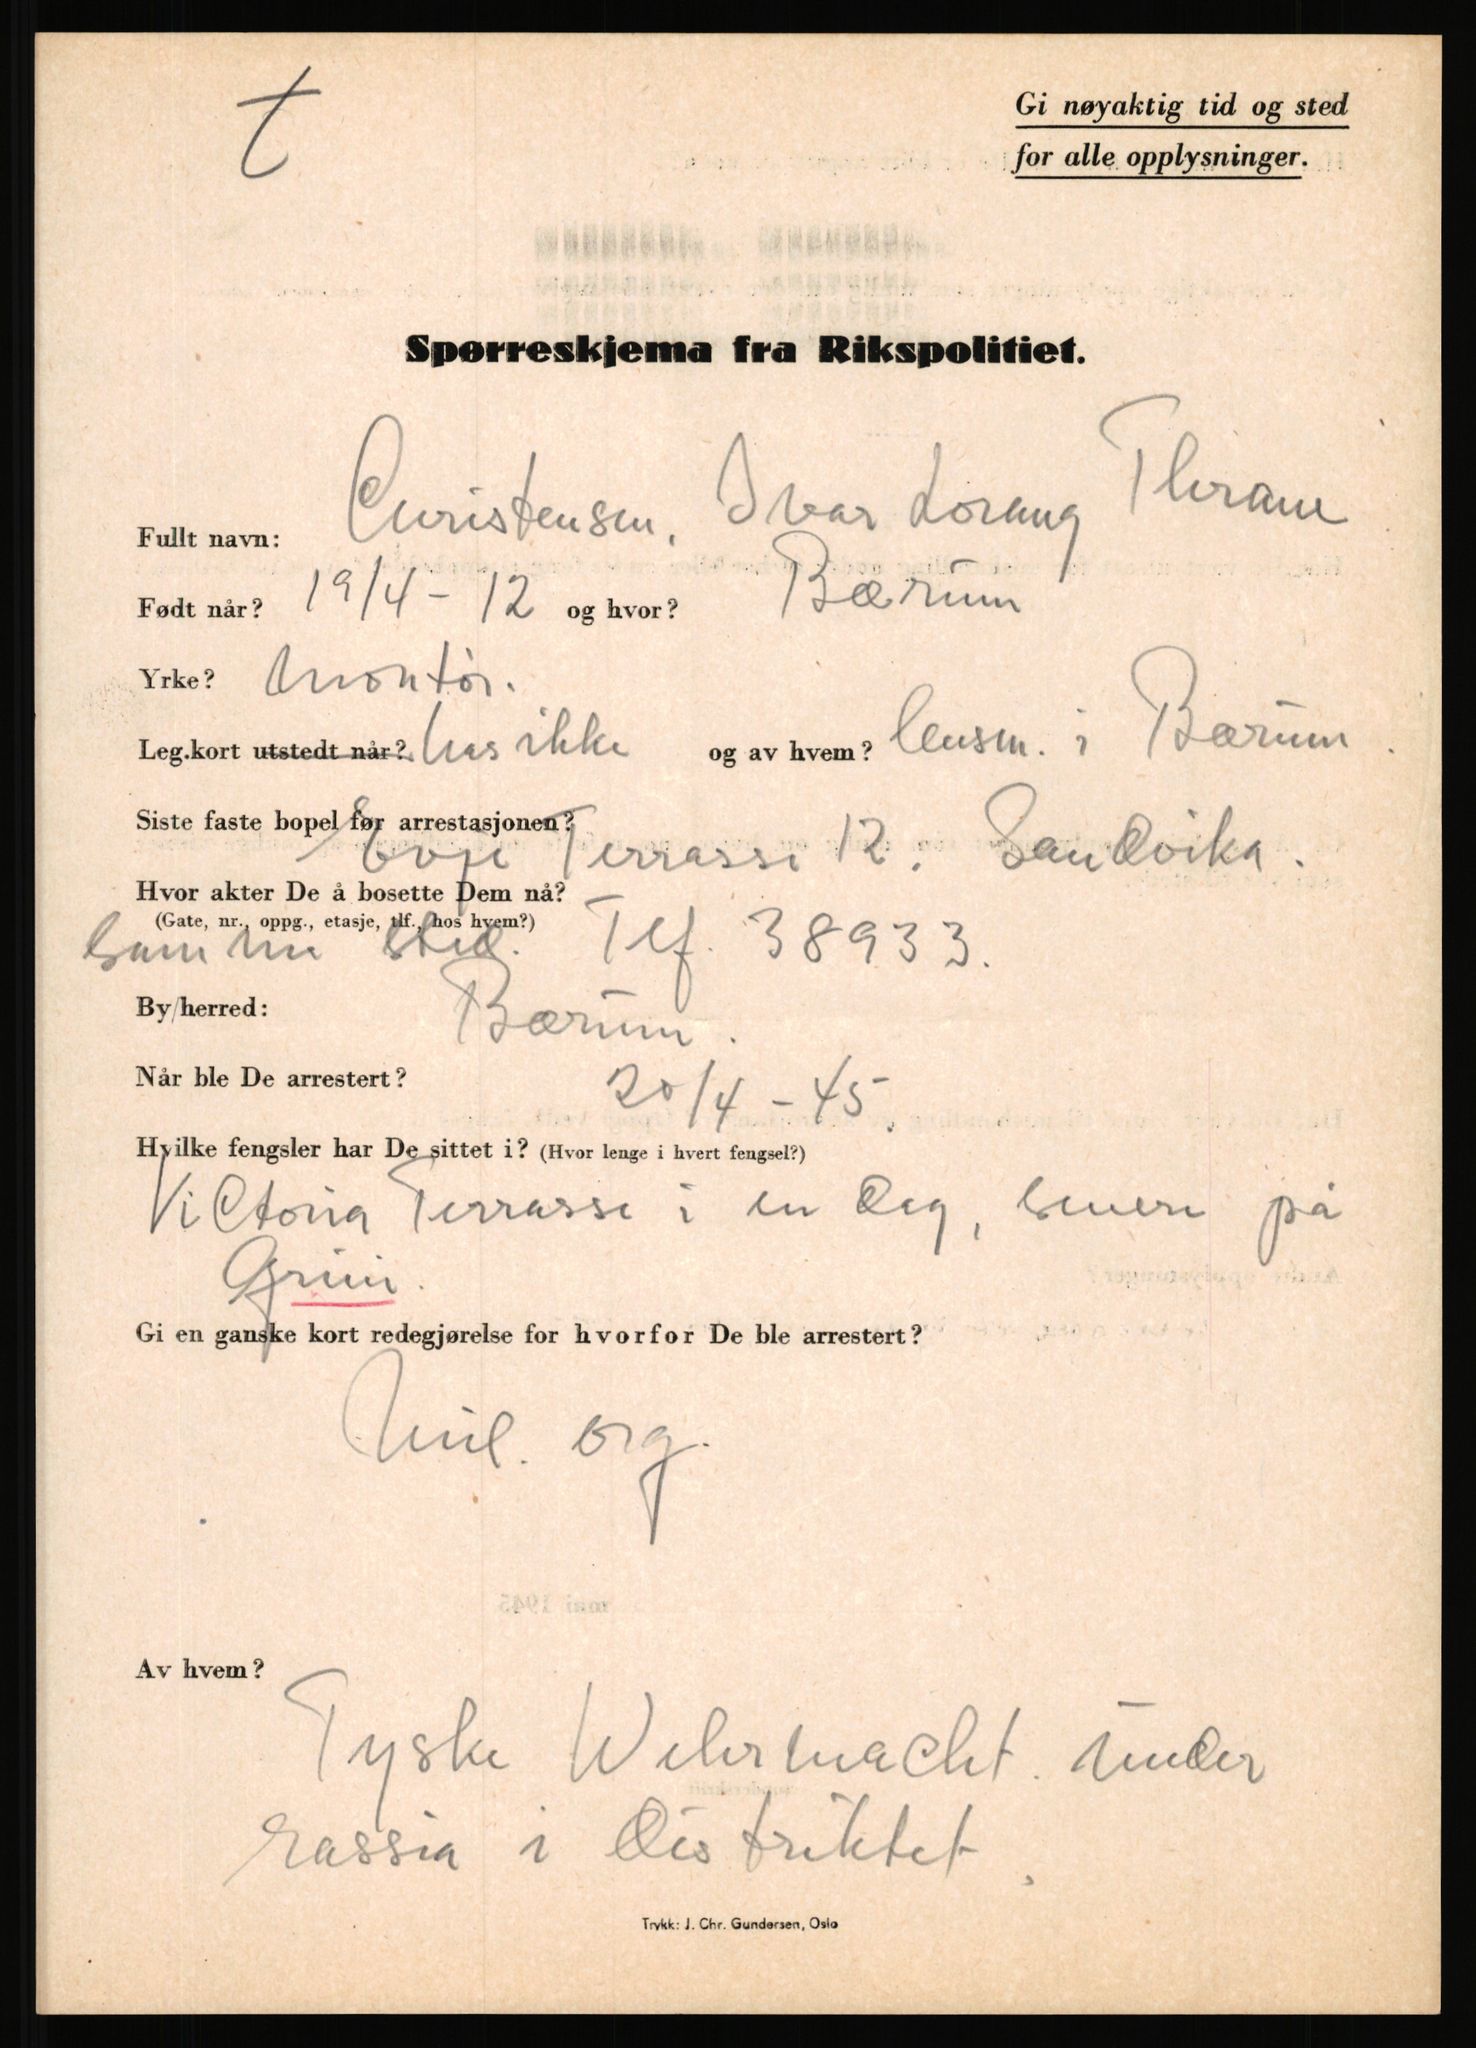 t
Gi nøyaktig tid og sted
for alle opplysninger.
Spørreskjema fra Rikspolitiet.
Fullt navn: Christensen, Ivar Lorang Thrane
Født når? 19/4 - 12 og hvor? Bærum
Yrke? Montør.
Leg.kort utstedt når? has ikke og av hvem? lensm. i Bærum.
Siste faste bopel før arrestasjonen?
Evje Terrasse 12. Sandvika.
Hvor akter De å bosette Dem nå?
(Gate, nr., oppg., etasje, tlf., hos hvem?)
samme sted. Telf. 38933.
By/herred: Bærum.
Når ble De arrestert? 20/4 - 45.
Hvilke fengsler har De sittet i? (Hvor lenge i hvert fengsel?)
Victoria Terrasse i en dag, senere på
Grini.
Gi en ganske kort redegjørelse for hvorfor De ble arrestert?
Mil. org.
Av hvem?
Tyske Wehrmacht under
rassia i distriktet.
Trykk: J. Chr. Gundersen, Oslo